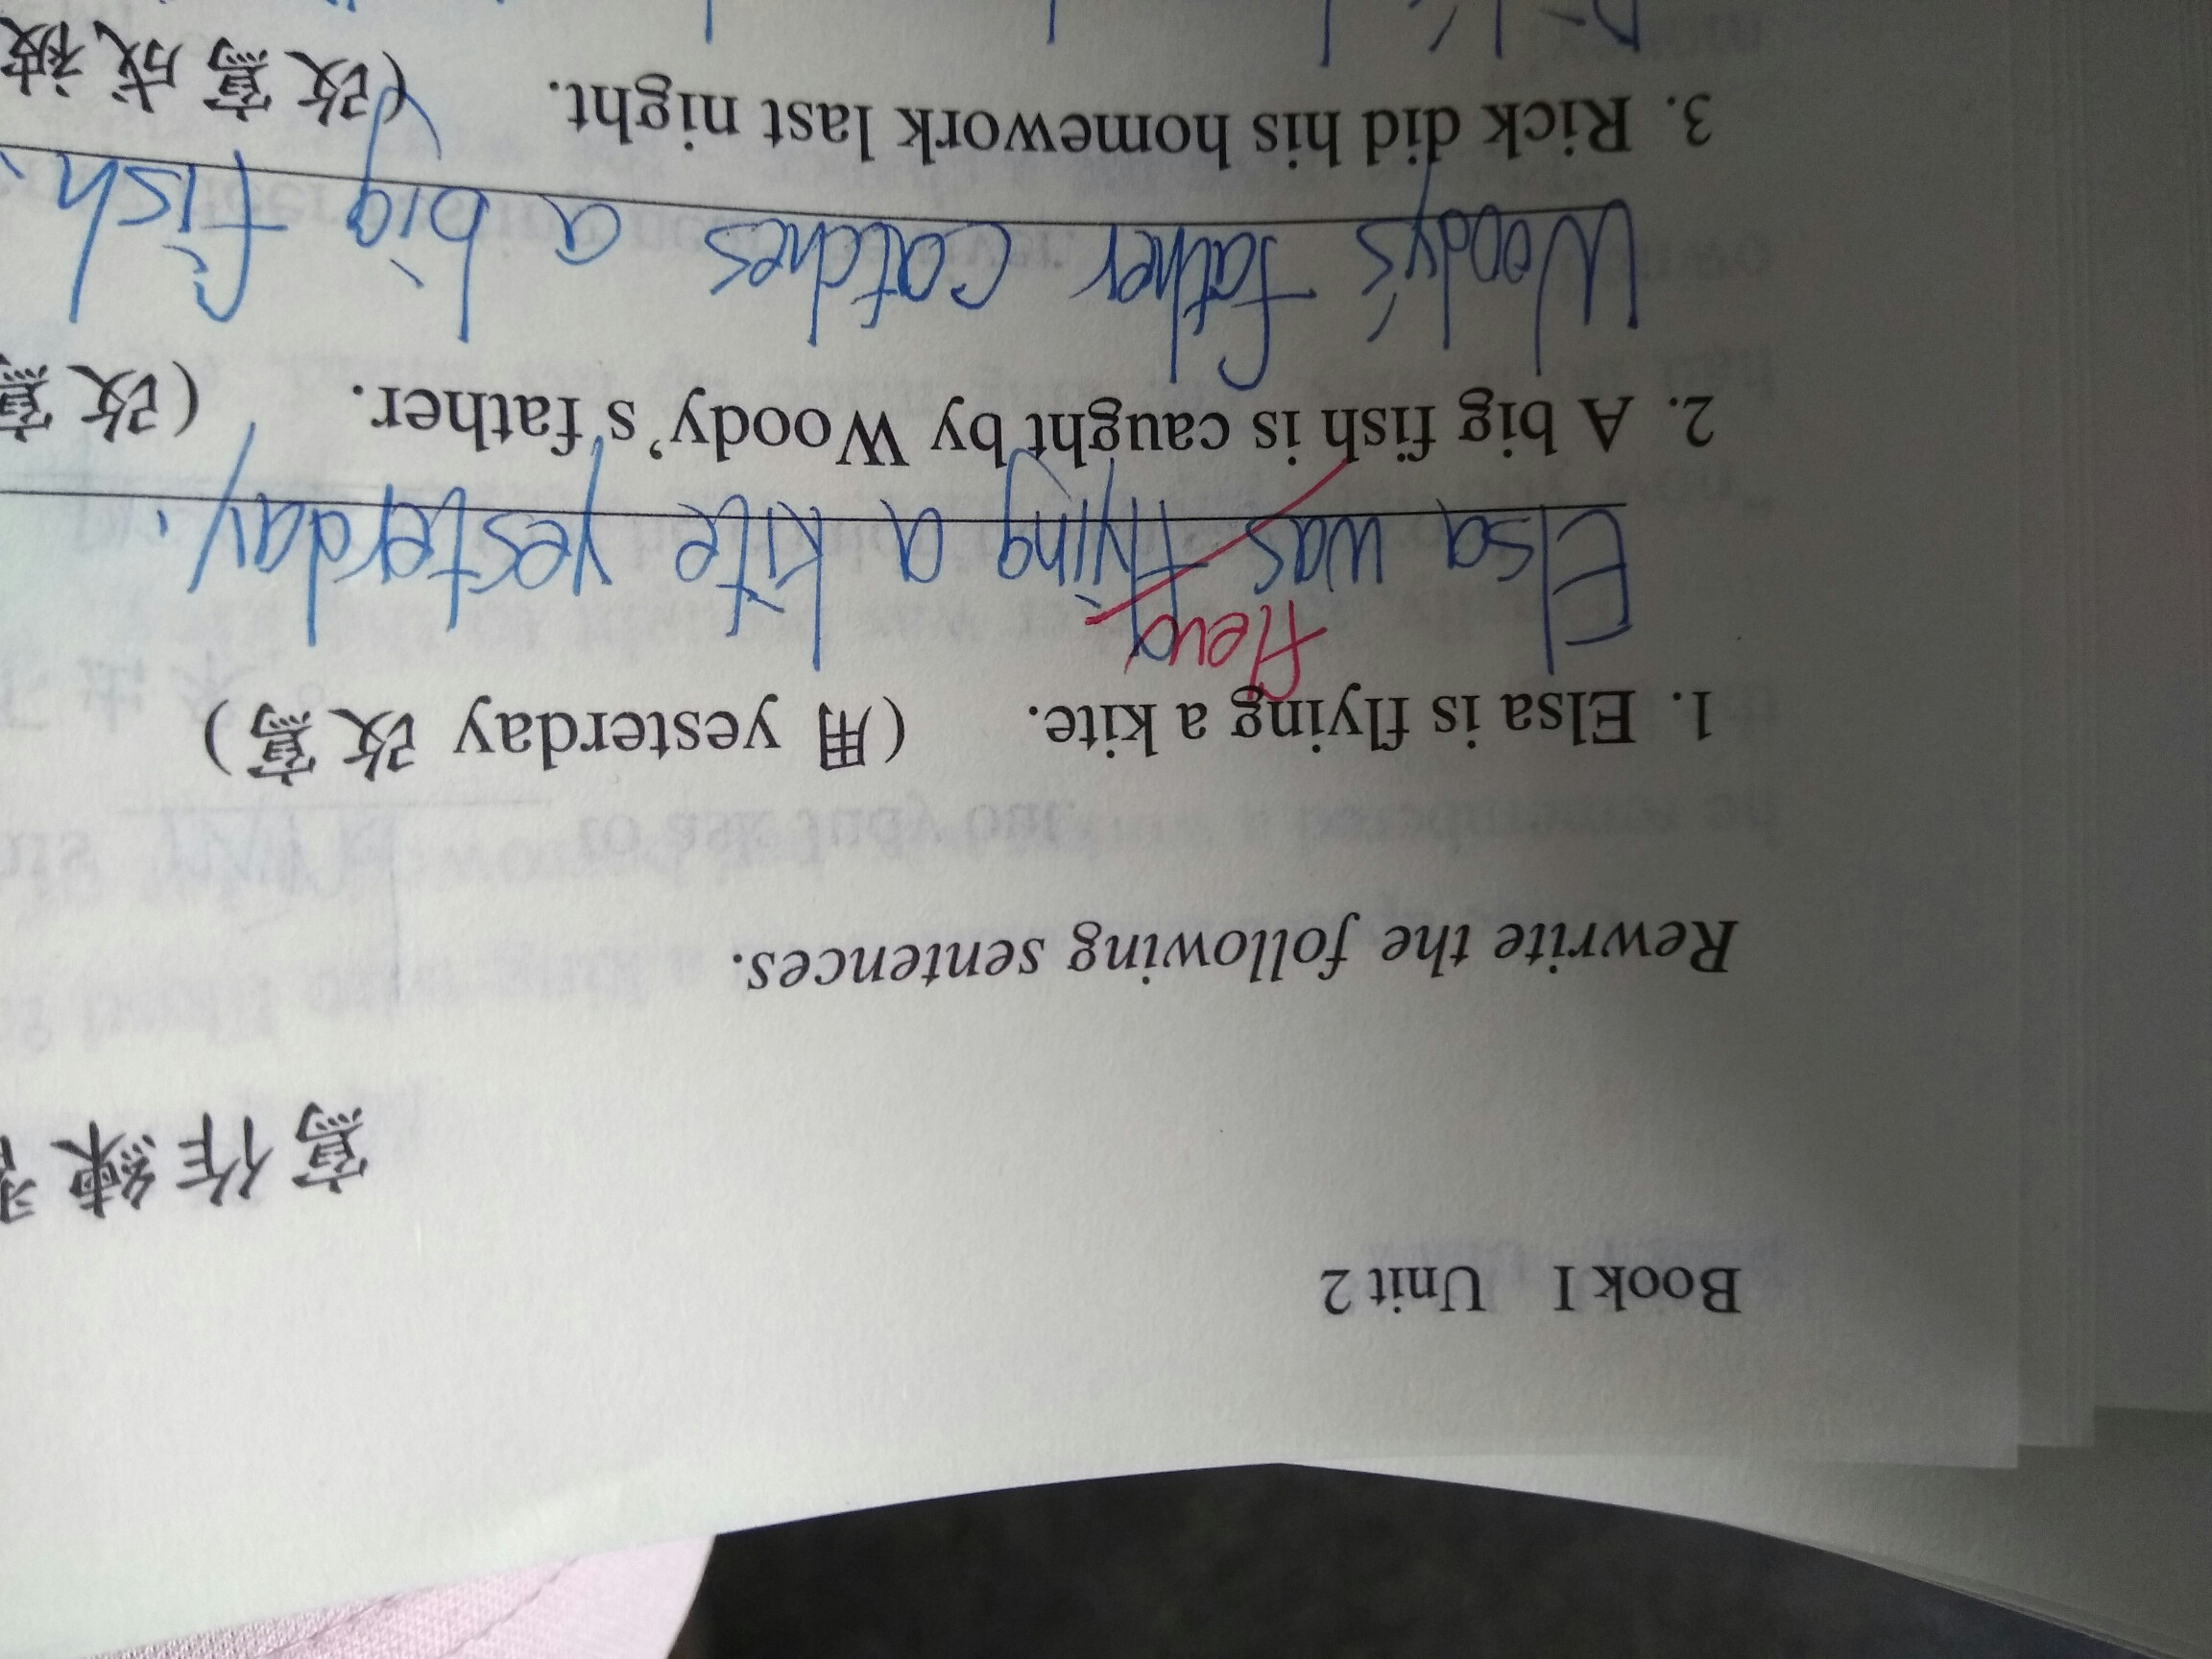 Book I Unit 2
寫作練
Rewrite the following sentences.
1. Elsa is flying a kite. (用 yesterday 改寫)
flew
Elsa was flying a kite yesterday.
2. A big fish is caught by Woody's father. (改寫
Woody's father catches a big fish.
3. Rick did his homework last night. (改寫成被